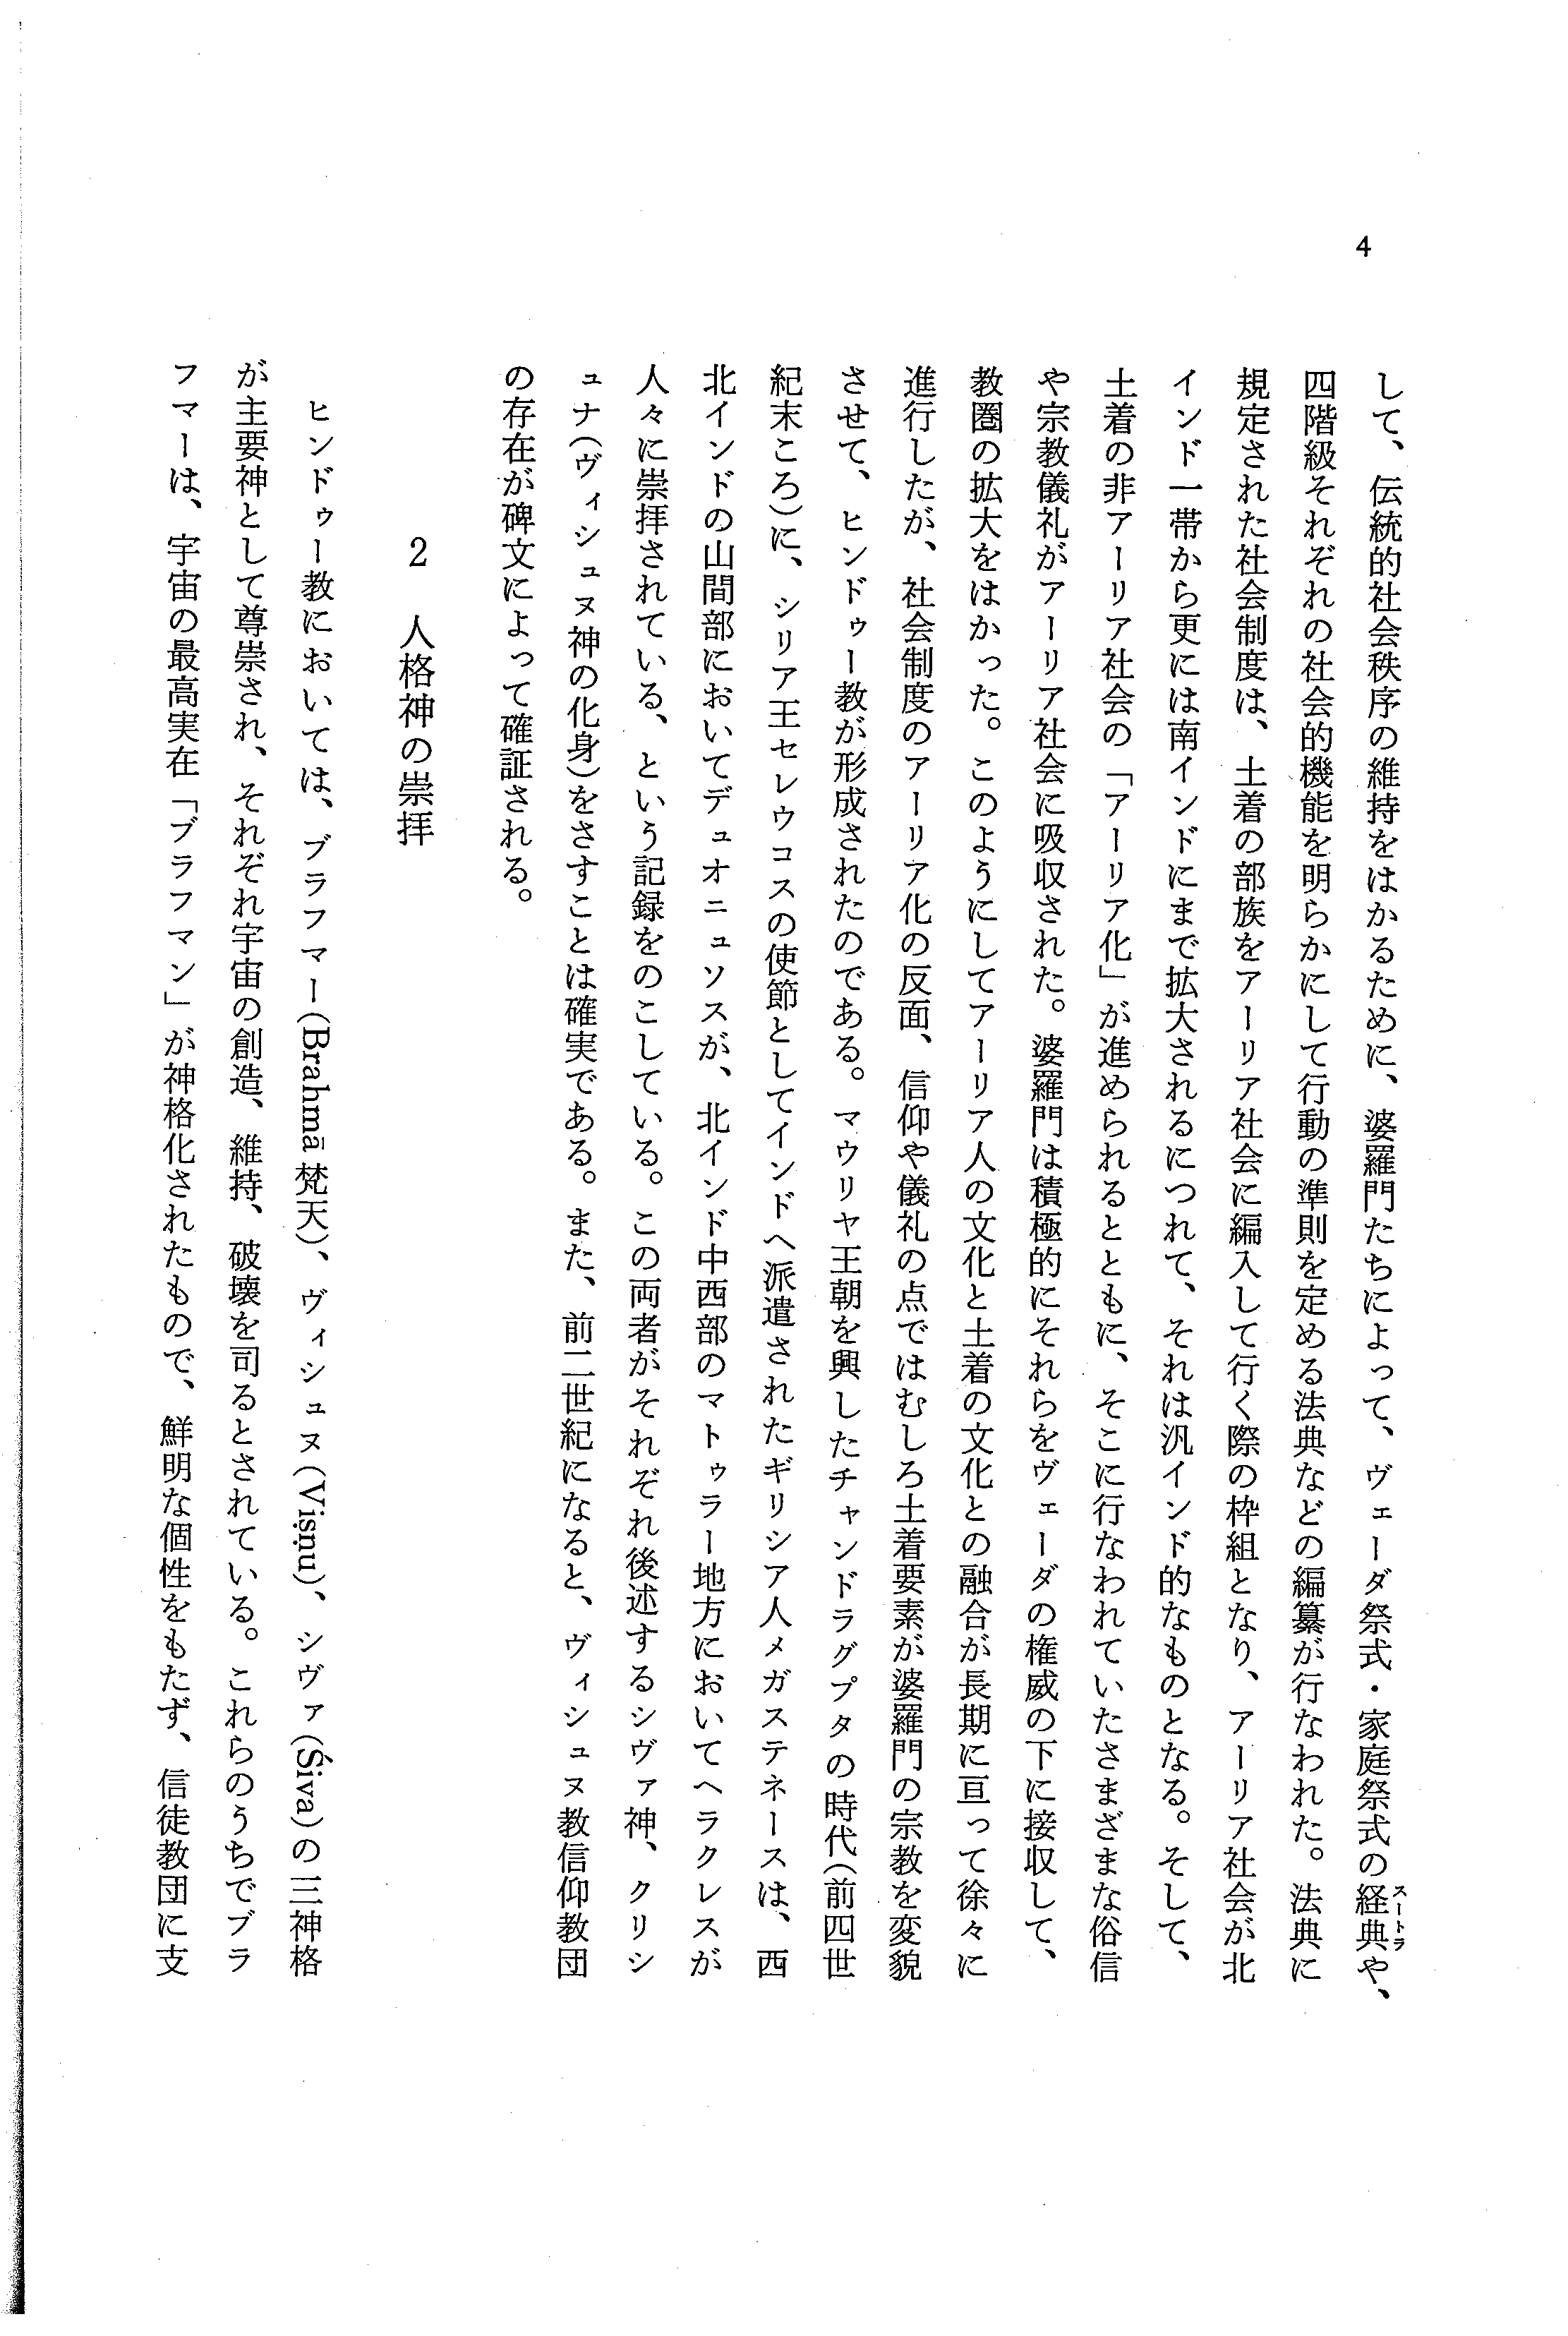 4
して、伝統的社会秩序の維持をはかるために、婆羅門たちによって、ヴェーダ祭式・家庭祭式の経典や、
スートラ
四階級それぞれの社会的機能を明らかにして行動の準則を定める法典などの編纂が行なわれた。法典に
規定された社会制度は、土着の部族をアーリア社会に編入して行く際の枠組となり、アーリア社会が北
インド一帯から更には南インドにまで拡大されるにつれて、それは汎インド的なものとなる。そして、
土着の非アーリア社会の「アーリア化」が進められるとともに、そこに行なわれていたさまざまな俗信
や宗教儀礼がアーリア社会に吸収された。婆羅門は積極的にそれらをヴェーダの権威の下に接収して、
教圏の拡大をはかった。このようにしてアーリア人の文化と土着の文化との融合が長期に亘って徐々に
進行したが、社会制度のアーリア化の反面、信仰や儀礼の点ではむしろ土着要素が婆羅門の宗教を変貌
させて、ヒンドゥー教が形成されたのである。マウリヤ王朝を興したチャンドラグプタの時代(前四世
紀末ころ)に、シリア王セレウコスの使節としてインドへ派遣されたギリシア人メガステネースは、西
北インドの山間部においてデュオニュソスが、北インド中西部のマトゥラー地方においてヘラクレスが
人々に崇拝されている、という記録をのこしている。この両者がそれぞれ後述するシヴァ神、クリシ
ュナ(ヴィシュヌ神の化身)をさすことは確実である。また、前二世紀になると、ヴィシュヌ教信仰教団
の存在が碑文によって確証される。
2 人格神の崇拝
ヒンドゥー教においては、ブラフマー(Brahmā 梵天)、ヴィシュヌ(Viṣṇu)、シヴァ(Śiva)の三神格
が主要神として尊崇され、それぞれ宇宙の創造、維持、破壊を司るとされている。これらのうちでブラ
フマーは、宇宙の最高実在「ブラフマン」が神格化されたもので、鮮明な個性をもたず、信徒教団に支